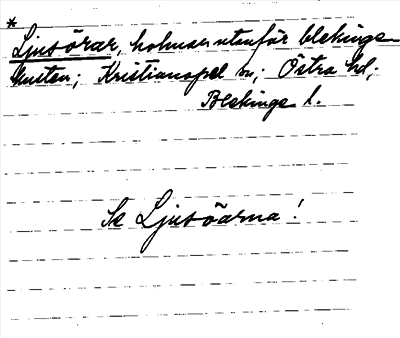 *
Ljusörar, holmar utanför blekinge
kusten; Kristianopel sn; Östra hd;
Blekinge l.
Se Ljusöarna!